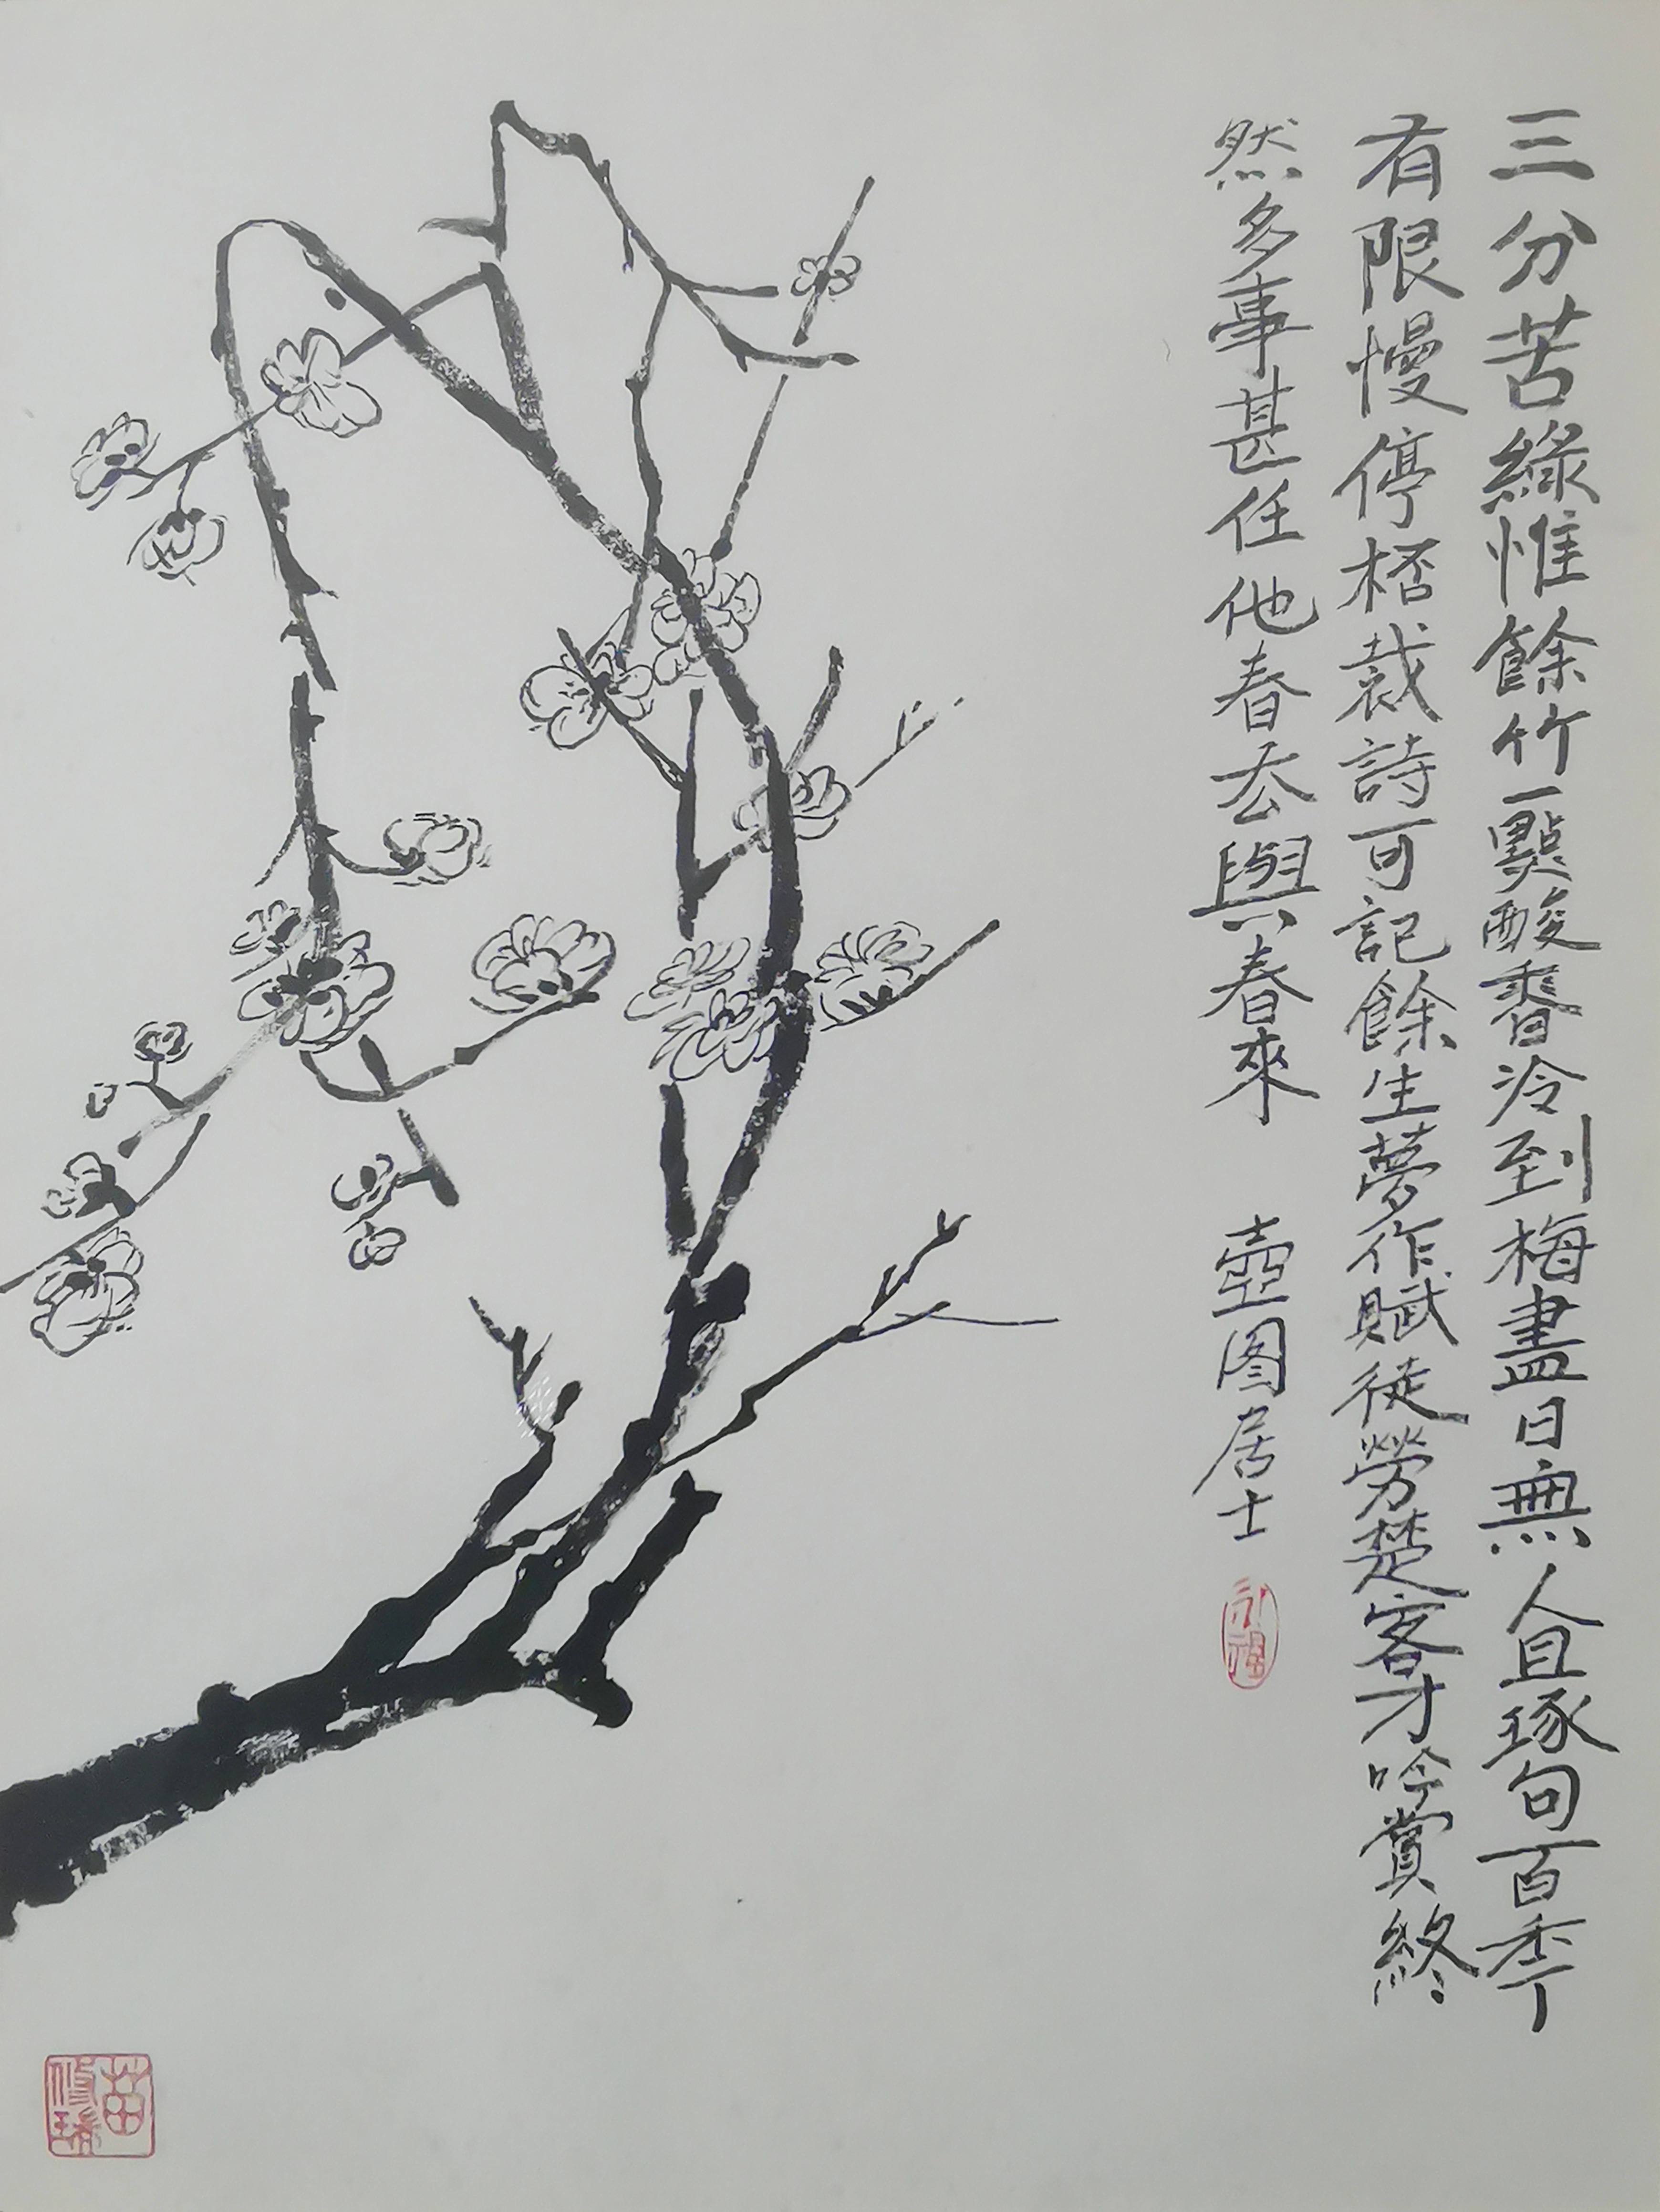 三分苦綠惟餘竹一點酸香冷到梅盡日無人且琢句百季
有限慢停桮裁詩可記餘生夢作賦徒勞楚客才吟賞終
然多事甚任他春去與春來 壺图居士
苗